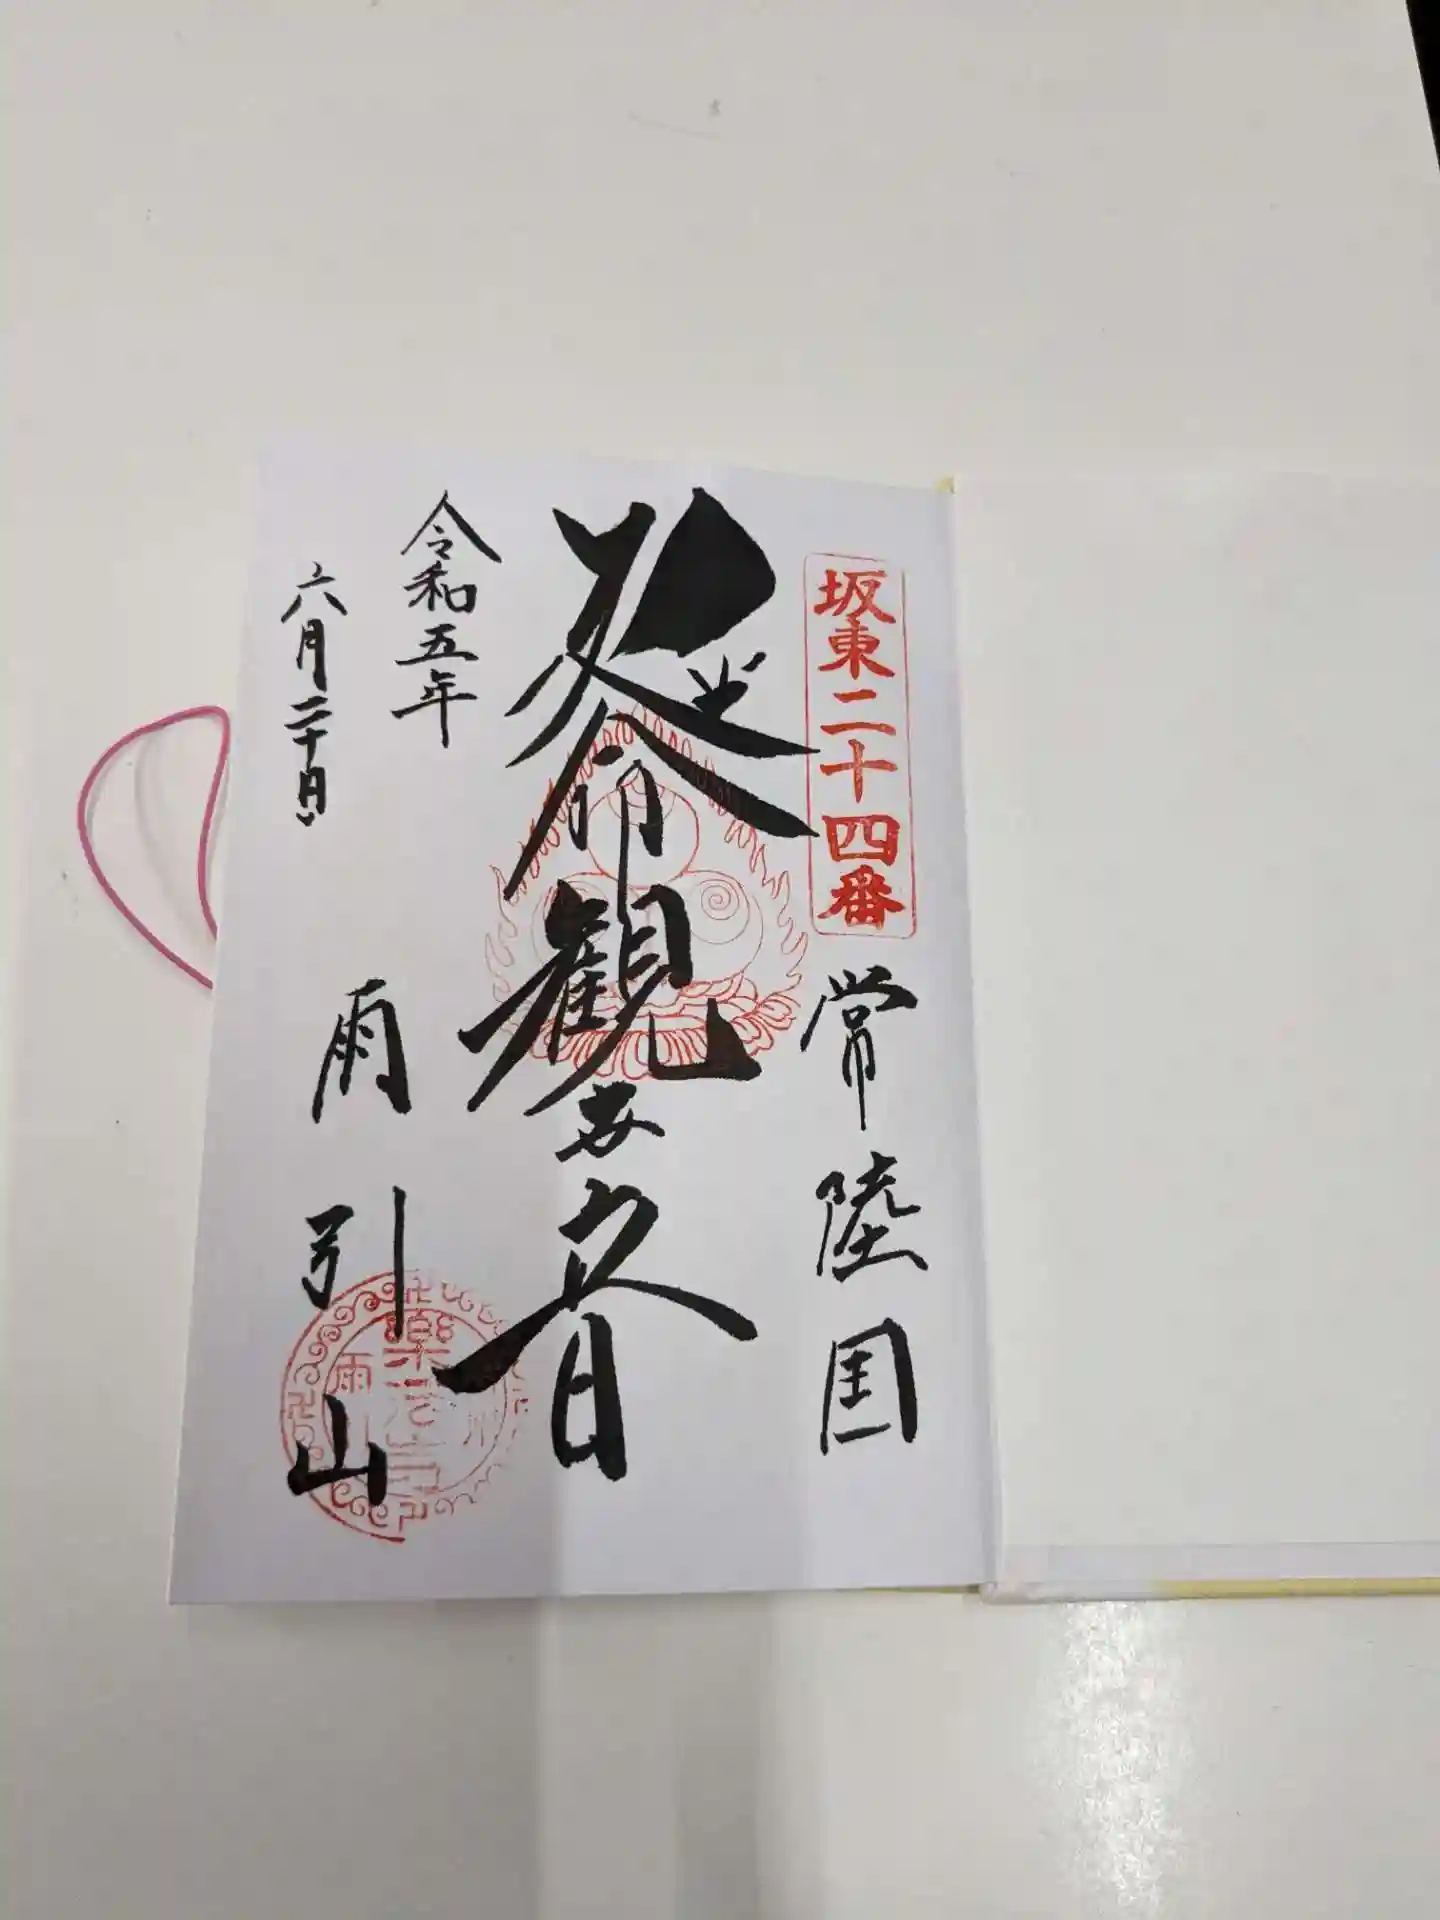 坂東二十四番
常陸国
延命観世音
令和五年
六月二十日
雨引山